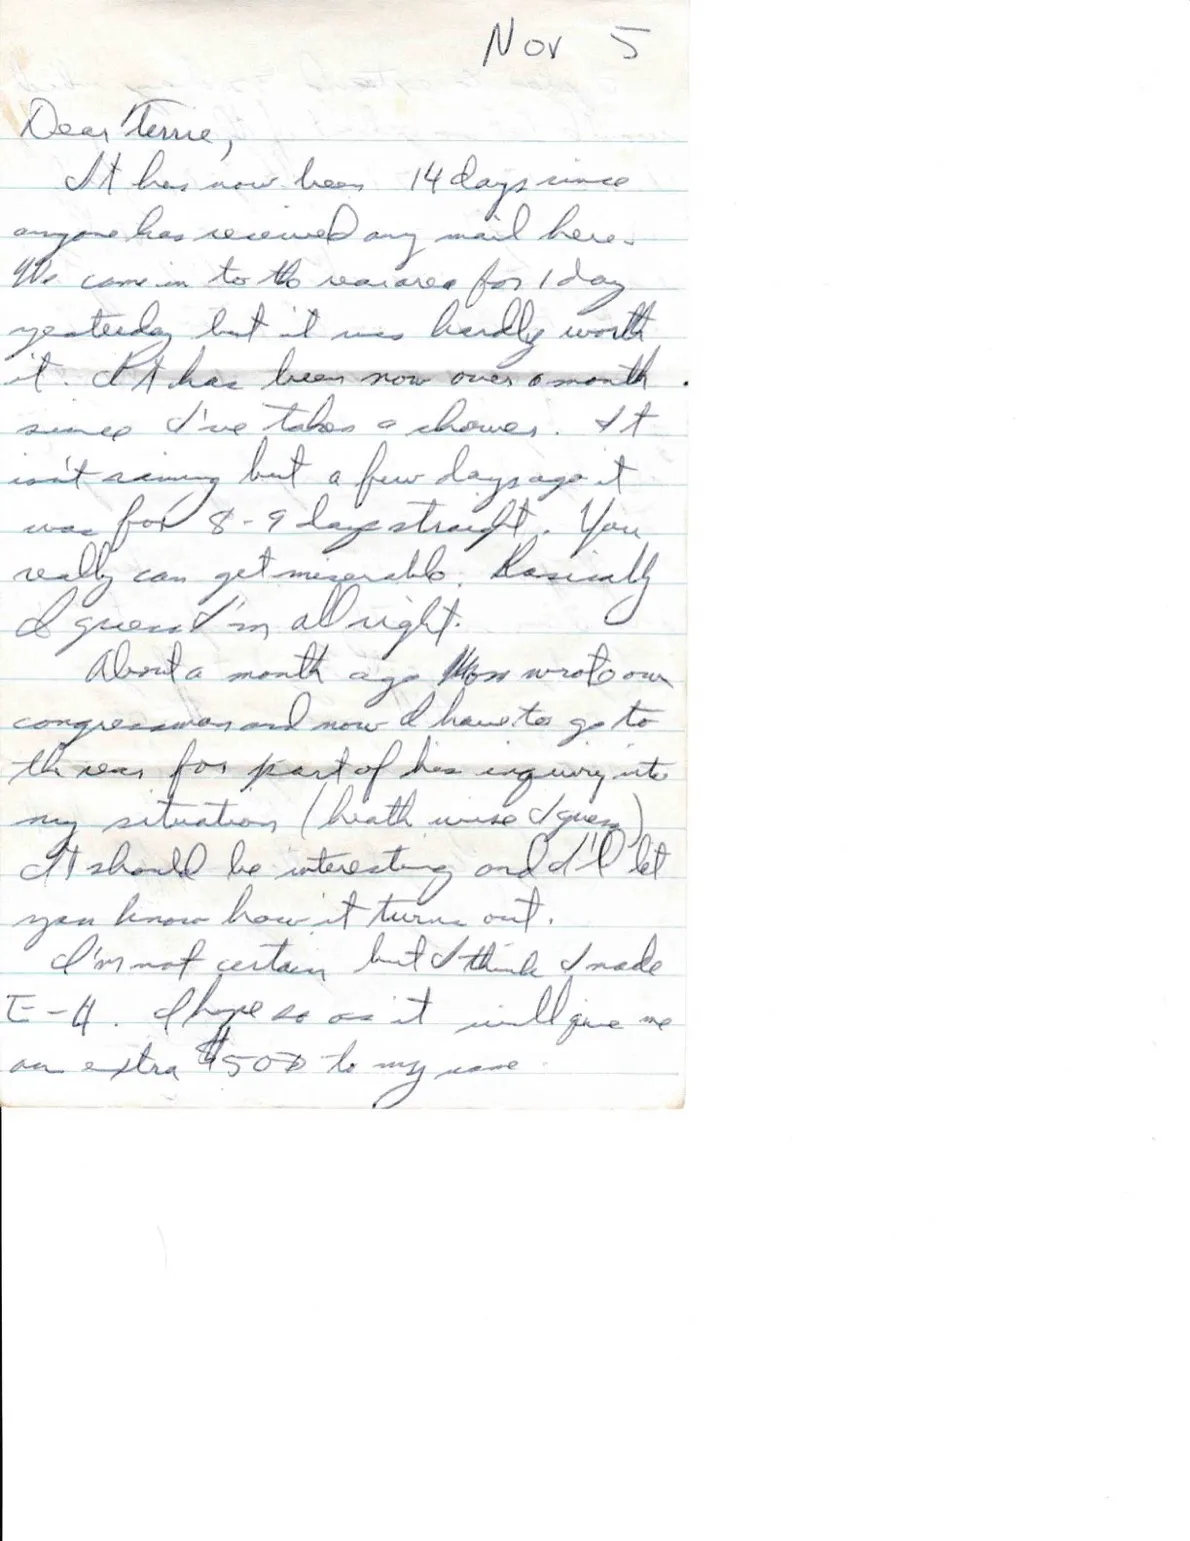 Nov 5
Dear Terrie,
It has now been 14 days since
anyone has received any mail here.
We came in to the rear area for 1 day
yesterday but it was hardly worth
it. It has been now over a month
since I've taken a shower. It
isn't raining but a few days ago it
was for 8-9 days straight. You
really can get miserable. Basically
I guess I'm all right.
About a month ago Mom wrote our
congressman and now I have to go to
the rear for part of his inquiry into
my situation (heath wise I guess)
It should be interesting and I'll let
you know how it turns out.
I'm not certain but I think I made
E-4. I hope so as it will give me
an extra $50 to my name.